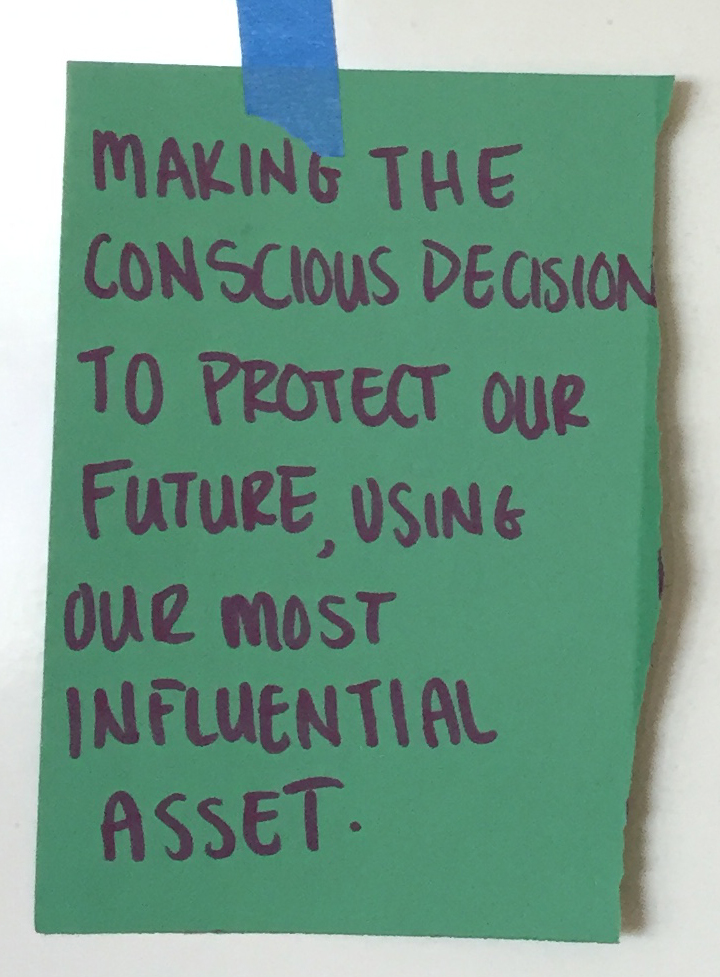 MAKING THE
CONSCIOUS DECISION
TO PROTECT OUR
FUTURE, USING
OUR MOST
INFLUENTIAL
ASSET.